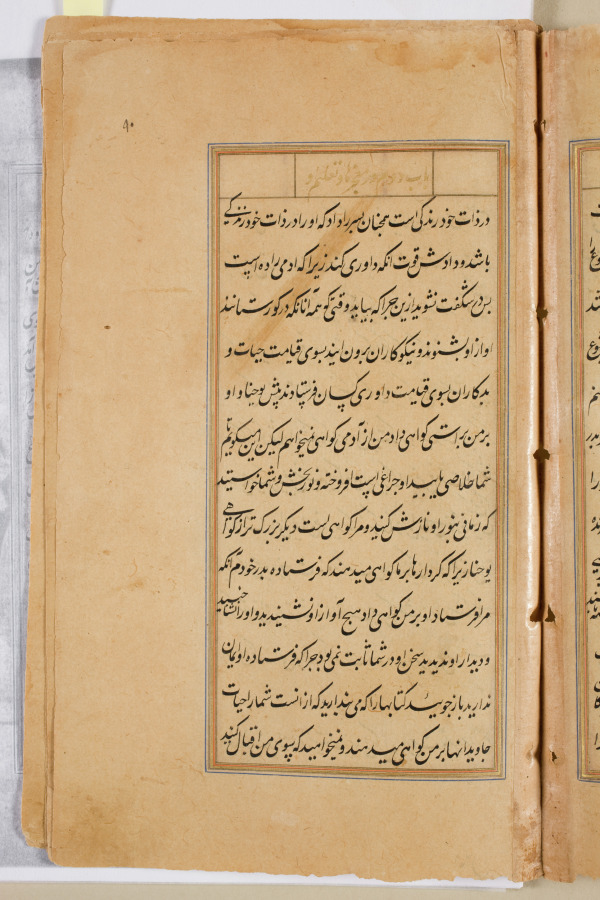 ۹۰
باب دوم در
در ذات خود زندگی است همچنان پسر را داد که او را در ذات خود زندگی
باشد و دادش قوت آنکه داوری کند زیرا که آدمی زاده است
پس در شگفت نشوید ازین چرا که بیاید وقتی که همه آنانکه در کورستانند
آواز او بشنوند و نیکوکاران برون آیند بسوی قیامت حیات و
بدکاران بسوی قیامت داوری کسان فرستادند پیش یوحنا و او
بر من براستی کواهی داد من از آدمی کواهی نمیخواهم لیکن این میکویم تا
شما خلاصی یابید او چراغی است افروخته و نور بخش و شما خواستید
که زمانی بنور او نازش کنید و مرا کواهی است دیکر بزرک تر از کواهی
یوحنا زیرا که کردارها بر ما کواهی میدهند که فرستاده پدر خودم آنکه
مرا فرستاد او بر من کواهی داد هیچ آواز او نشنیدید و او را نشناختید
و دیدار او ندیدید سخن او در شما ثابت نمی بود چرا که فرستاده او ایمان
ندارید باز جویید کتابها را که می پندارید که از آنست شما را حیات
جاوید آنها بر من کواهی میدهند و نمیخواهید که بسوی من اقبال کنید